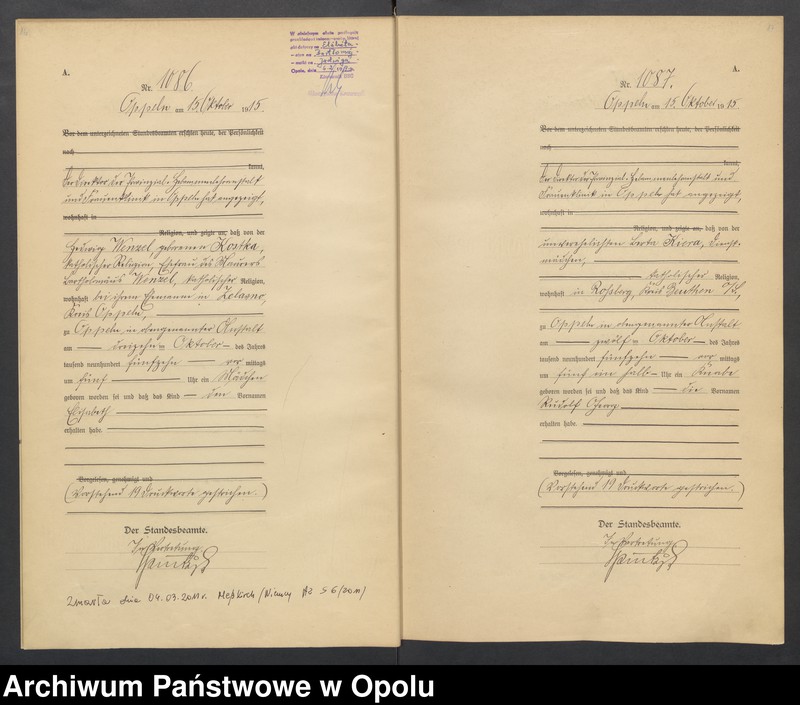 A.
Nr. 1086
Oppeln am 15. Oktober 1915.
Vor dem unterzeichneten Standesbeamten erschien heute, der Persönlichkeit
nach
kannt,
Der Direktor der Provinzial-Hebammenlehranstalt
und Frauenklinik in Oppeln hat angezeigt,
wohnhaft in
Religion, und zeigte an, daß von der
Hedwig Wenzel, geborenen Kostka,
katholischer Religion, Ehefrau des Maurers
Bartholomäus Wenzel, katholischer Religion,
wohnhaft bei ihrem Ehemann in Zelasno,
Kreis Oppeln,
zu Oppeln in obengenannter Anstalt
am dreizehnten Oktober des Jahres
tausend neunhundert fünfzehn vormittags
um fünf Uhr ein Mädchen
geboren worden sei und daß das Kind den Vornamen
Elisabeth
erhalten habe.
Vorgelesen, genehmigt und
(Vorstehend 19 Druckworte gestrichen.)
Der Standesbeamte.
In Vertretung
Zmarła dnia 04.03.2011r. Meßkirch/Niemcy
W niniejszym akcie
Elżbieta
Jadwiga
Opole, dnia
A.
Nr. 1087.
Oppeln am 15. Oktober 1915
Vor dem unterzeichneten Standesbeamten erschien heute, der Persönlichkeit
nach
kannt,
Der Direktor der Provinzial-Hebammenlehranstalt und
Frauenklinik in Oppeln hat angezeigt,
wohnhaft in
Religion, und zeigte an, daß von der
unverehelichten Berta Kiera, Dienst-
mädchen,
katholischer Religion,
wohnhaft in Roßberg, Kreis Beuthen O/S.,
zu Oppeln in obengenannter Anstalt
am zwölften Oktober des Jahres
tausend neunhundert fünfzehn vormittags
um fünf ein halb Uhr ein Knabe
geboren worden sei und daß das Kind die Vornamen
Rudolf Georg
erhalten habe.
Vorgelesen, genehmigt und
(Vorstehend 19 Druckworte gestrichen.)
Der Standesbeamte.
In Vertretung
Archiwum Państwowe w Opolu